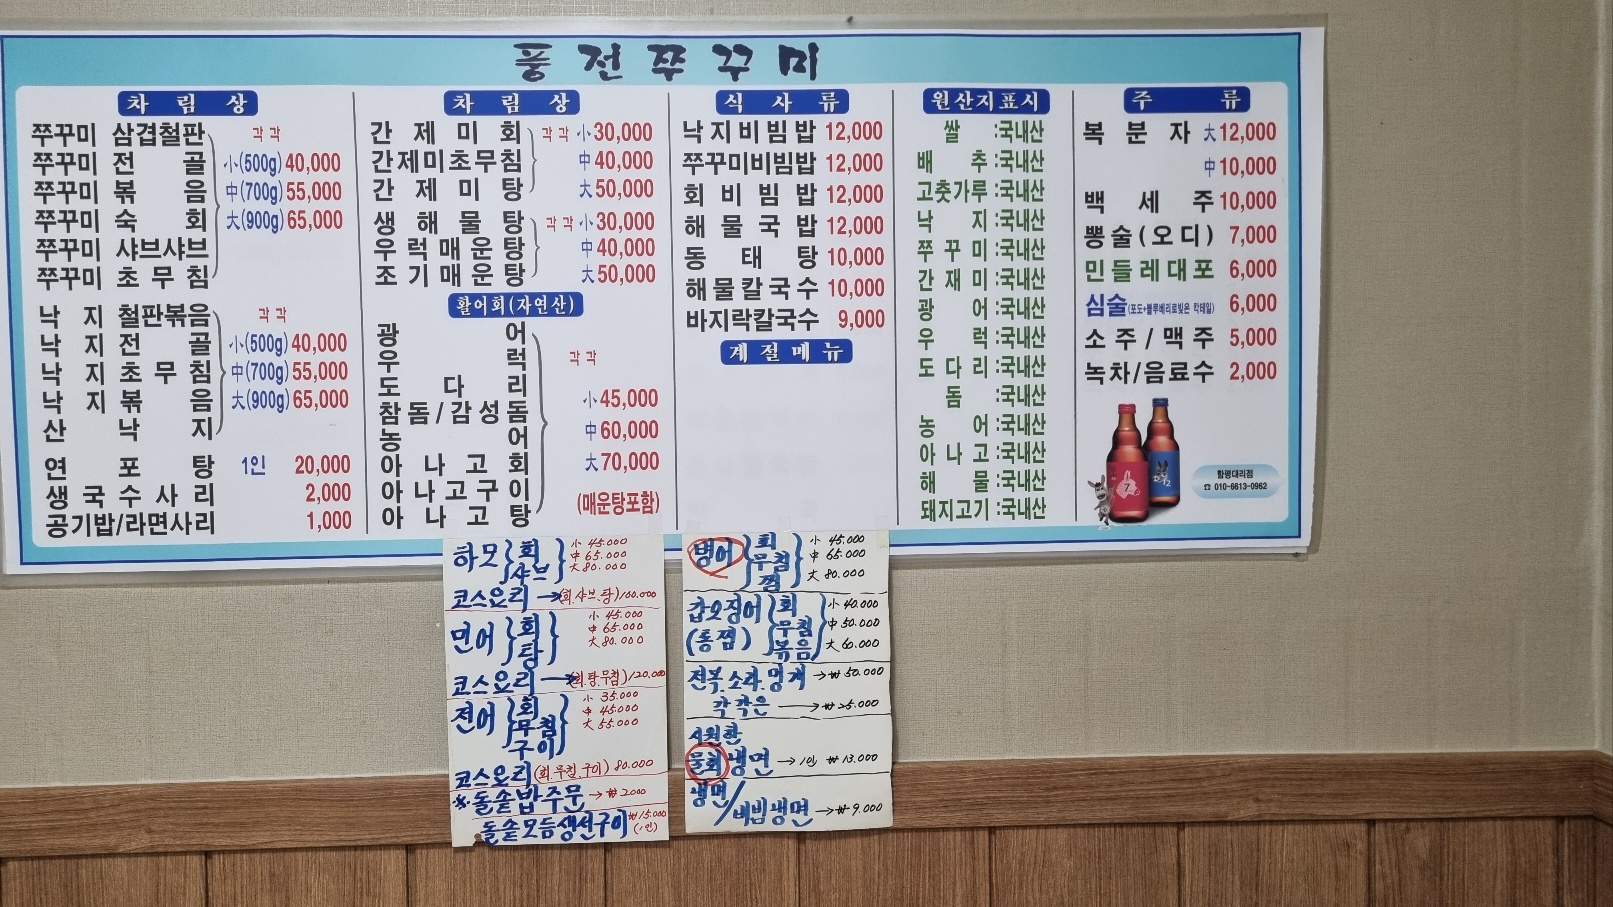 풍전쭈꾸미
차림상
쭈꾸미 삼겹철판 각각
쭈꾸미 전골 小(500g) 40,000
쭈꾸미 볶음 中(700g) 55,000
쭈꾸미 숙회 大(900g) 65,000
쭈꾸미 샤브샤브
쭈꾸미 초무침
낙지 철판볶음 각각
낙지 전골 小(500g) 40,000
낙지 초무침 中(700g) 55,000
낙지 볶음 大(900g) 65,000
산낙지
연포탕 1인 20,000
생국수사리 2,000
공기밥/라면사리 1,000
차림상
간제미회 각각 小 30,000
간제미초무침 中 40,000
간제미탕 大 50,000
생해물탕 각각 小 30,000
우럭매운탕 中 40,000
조기매운탕 大 50,000
활어회(자연산)
광어
우럭 각각
도다리 小 45,000
참돔/감성돔
농어 中 60,000
아나고회 大 70,000
아나고구이 (매운탕포함)
아나고탕
식사류
낙지비빔밥 12,000
쭈꾸미비빔밥 12,000
회비빔밥 12,000
해물국밥 12,000
동태탕 10,000
해물칼국수 10,000
바지락칼국수 9,000
계절메뉴
원산지표시
쌀 :국내산
배추 :국내산
고춧가루 :국내산
낙지 :국내산
쭈꾸미 :국내산
간재미 :국내산
광어 :국내산
우럭 :국내산
도다리 :국내산
돔 :국내산
농어 :국내산
아나고 :국내산
해물 :국내산
돼지고기 :국내산
주류
복분자 大 12,000
中 10,000
백세주 10,000
뽕술(오디) 7,000
민들레대포 6,000
심술(포도+블루베리로빚은 칵테일) 6,000
소주/맥주 5,000
녹차/음료수 2,000
7
12
함평대리점
☎ 010-6613-0962
하모 회 小 45.000
샤브 中 65.000
大 80.000
코스요리 → (회.샤브.탕) 100.000
민어 회 小 45.000
탕 中 65.000
大 80.000
코스요리 → (회.탕.무침) 120.000
전어 회 小 35.000
무침 中 45.000
구이 大 55.000
코스요리 (회.무침.구이) 80.000
※돌솥밥주문 → ₩2000
돌솥모듬생선구이 ₩15.000
(1인)
병어 회 小 45.000
무침 中 65.000
찜 大 80.000
갑오징어 회 小 40.000
(통찜) 무침 中 50.000
볶음 大 60.000
전복.소라.멍게 → ₩50.000
각각은 → ₩25.000
시원한
물회냉면 → 1인 ₩13.000
냉면/비빔냉면 → ₩9.000